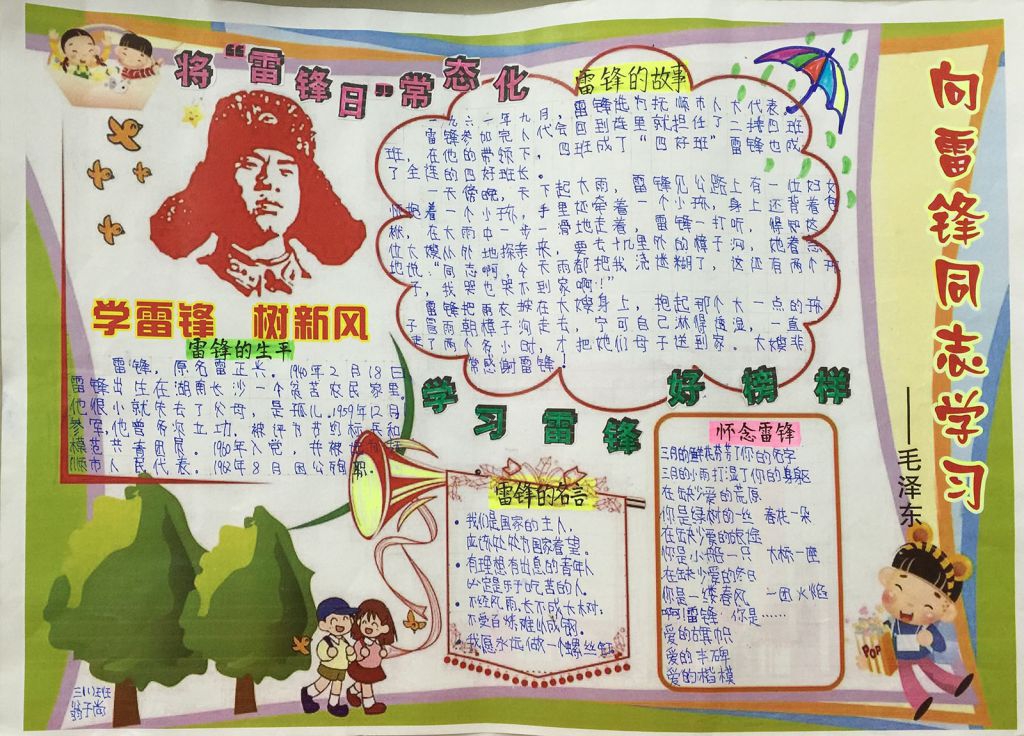 将“雷锋日”常态化
学雷锋 树新风
雷锋的生平
雷锋，原名雷正兴。1940年2月18日
雷锋出生在湖南长沙一个贫苦农民家里。
他很小就失去了父母，是孤儿.1959年12月
参军,他曾多次立功.被评为节约标兵和
模范共青团员。1960年入党，并被选为抚
顺市人民代表。1962年8月因公殉职.
雷锋的故事
一九六一年九月，雷锋选为抚顺市人大代表。
雷锋参加完人代会回到连里就担任了二排四班
班，在他的带领下，四班成了“四好班”雷锋也成
了全连的四好班长。
一天傍晚，天下起大雨，雷锋见公路上有一位妇女
怀抱着一个小孩，手里还牵着一个小孩，身上还背着包
袱，在大雨中一步一滑地走着，雷锋一打听，得知这
位大嫂从外地探亲来，要去十几里外的樟子沟，她着急
地说：“同志啊，今天雨都把我浇迷糊了，这还有两个孩
子，我哭也哭不到家啊！”
雷锋把雨衣披在大嫂身上，抱起那个大一点的孩
子冒雨朝樟子沟走去，宁可自己淋得透湿，一直
走了两个多小时，才把她们母子送到家。大嫂非
常感谢雷锋！
学习雷锋好榜样
雷锋的名言
• 我们是国家的主人，
应该处处为国家着望。
• 有理想有出息的青年人
必定是乐于吃苦的人。
• 不经风雨，长不成大树；
不受百炼，难以成钢。
• 我愿永远做一个螺丝钉。
怀念雷锋
三月的鲜花芬芳了你的名字
三月的小雨打湿了你的身躯
在缺少爱的荒原
你是绿树的一丝 春花一朵
在缺少爱的旅途
你是小船一只 大桥一座
在缺少爱的冬日
你是一缕春风 一团火焰
啊！雷锋 你是……
爱的旗帜
爱的丰碑
爱的楷模
向雷锋同志学习
——毛泽东
POP
三(1)班
翁于尚